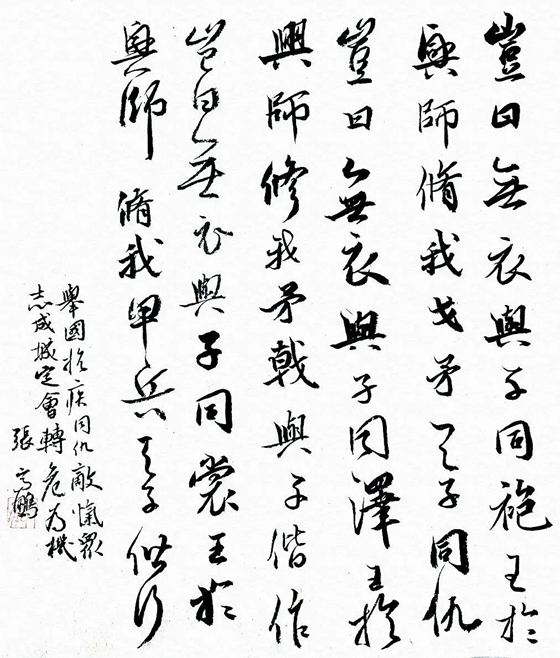 豈曰無衣與子同袍王於
興師脩我戈矛与子同仇
豈曰無衣與子同澤王於
興師修我矛戟與子偕作
豈曰無衣與子同裳王於
興師脩我甲兵与子偕行
舉國抗疾同仇敵愾眾
志成城定會轉危為機
張 鵬